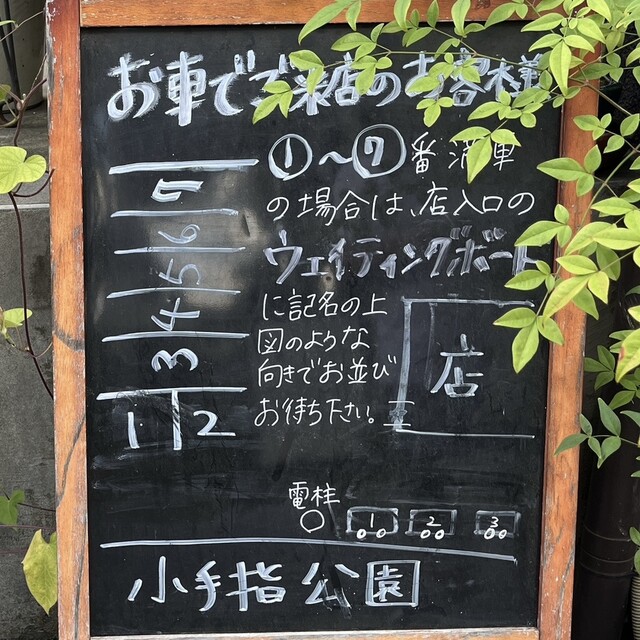 お車でご来店のお客様
①～⑦番満車
の場合は、店入口の
ウェイティングボード
に記名の上
図のような
向きでお並び
お待ち下さい。
7
6
5
4
3
1 2
店
電柱
1 2 3
小手指公園